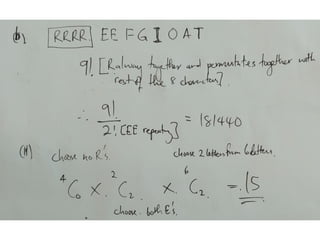 b) RRRR E E F G I O A T
9! [Railway together and permutates together with
rest of the 8 characters]
∴ 9! / 2! [EE repeats] = 181440
(ii) choose no R's. choose 2 letters from 6 letters.
⁴C₀ × ²C₂ × ⁶C₂ = 15
choose both E's.